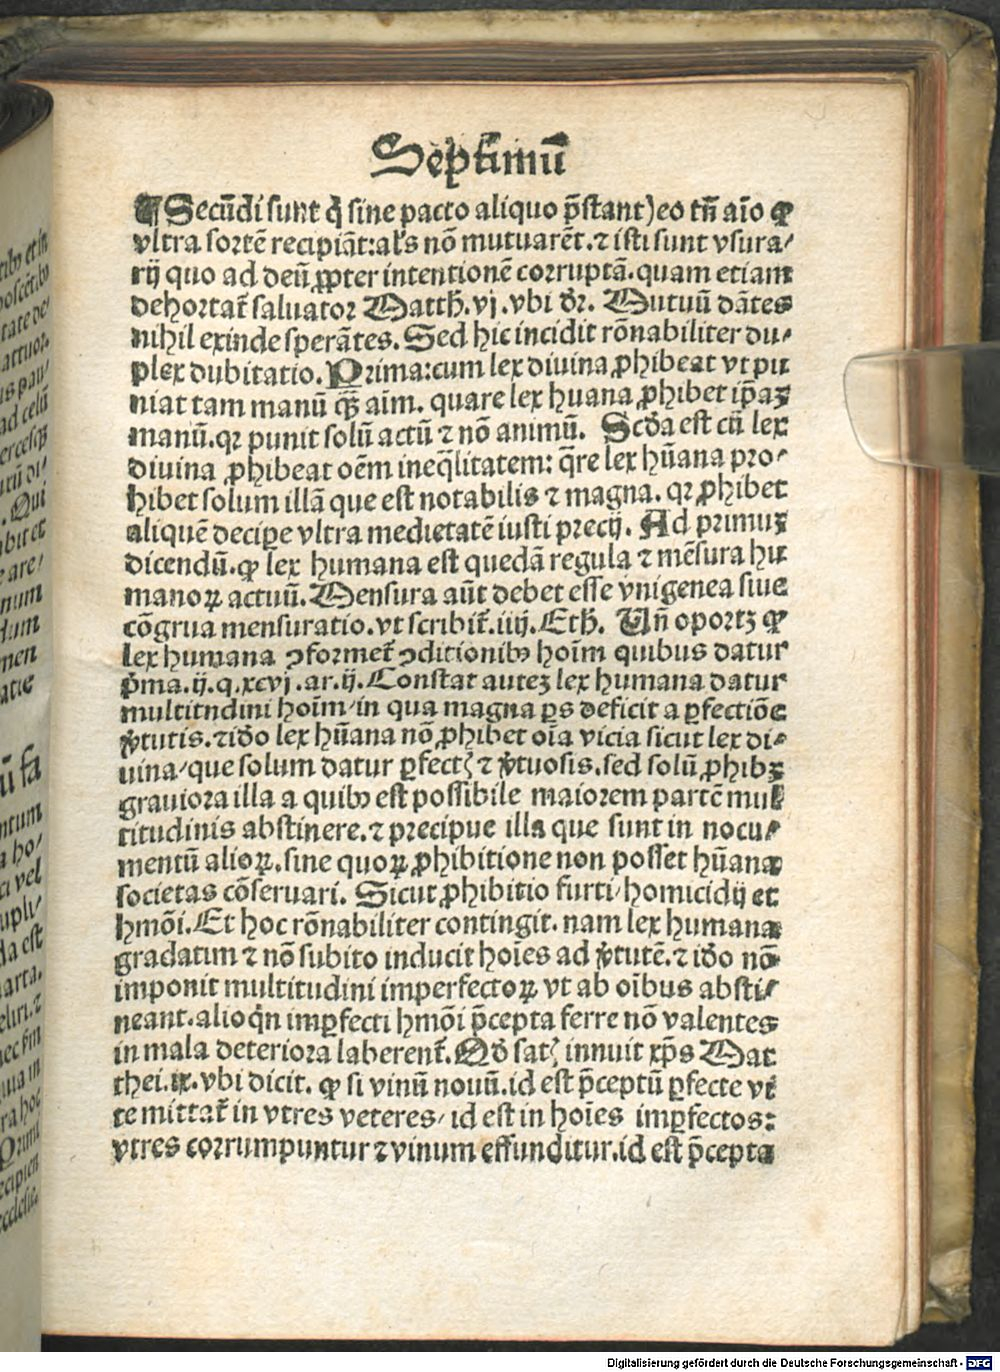 Septimū
¶ Secūdi sunt q̄ sine pacto aliquo p̄stant)eo tn̄ aīo ꝙ
vltra sortē recipiāt:al's nō mutuarēt.⁊ isti sunt vsura/
rij quo ad deū ꝓpter intentionē corruptā.quam etiam
dehortat̄ saluator Matth̄.vj.vbi dr̄. Mutuū dātes
nihil exinde sperātes. Sed hic incidit rōnabiliter du/
plex dubitatio. Prima:cum lex diuina ꝓhibeat vt pu
niat tam manū qꝫ̄ aīm. quare lex huana ꝓhibet ip̄aꝫ
manū.qꝛ punit solū actū ⁊ nō animū. Scd̄a est cū lex
diuina ꝓhibeat oēm ineq̄litatem: q̄re lex hūana pro/
hibet solum illā que est notabilis ⁊ magna. qꝛ ꝓhibet
aliquē decipe vltra medietatē iusti precij. Ad primuꝫ
dicendū.ꝙ lex humana est quedā regula ⁊ mēsura hu
manoꝝ actuū. Mensura aūt debet esse vnigenea siue
cōgrua mensuratio.vt scribit̄.iiij.Eth̄. Vn̄ oportꝫ ꝙ
lex humana ꝯformet̄ ꝯditionibꝰ hoīm quibus datur
p̄ma.ij.q.xcvj.ar.ij. Constat auteꝫ lex humana datur
multitndini hoīm/in qua magna ꝑs deficit a ꝑfectiōe
v̄tutis.⁊ idō lex hūana nō ꝓhibet oīa vicia sicut lex di/
uina/que solum datur ꝑfectꝭ ⁊ v̄tuosis.sed solū ꝓhibꝫ
grauiora illa a quibꝰ est possibile maiorem partē mul
titudinis abstinere.⁊ precipue illa que sunt in nocu/
mentū alioꝝ.sine quoꝝ ꝓhibitione non posset hūana
societas cōseruari. Sicut ꝓhibitio furti/homicidij et
hmōi. Et hoc rōnabiliter contingit. nam lex humana
gradatim ⁊ nō subito inducit hoīes ad v̄tutē.⁊ idō nō
imponit multitudini imperfectoꝝ vt ab oībus absti/
neant.alioq̄n imꝑfecti hmōi p̄cepta ferre nō valentes
in mala deteriora laberent̄. Qd̄ satꝭ innuit xp̄s Mat
thei.ix.vbi dicit. ꝙ si vinū nouū.id est p̄ceptū ꝑfecte vi
te mittat̄ in vtres veteres/id est in hoīes imꝑfectos:
vtres corrumpuntur ⁊ vinum effunditur.id est p̄cepta
Digitalisierung gefördert durch die Deutsche Forschungsgemeinschaft - DFG